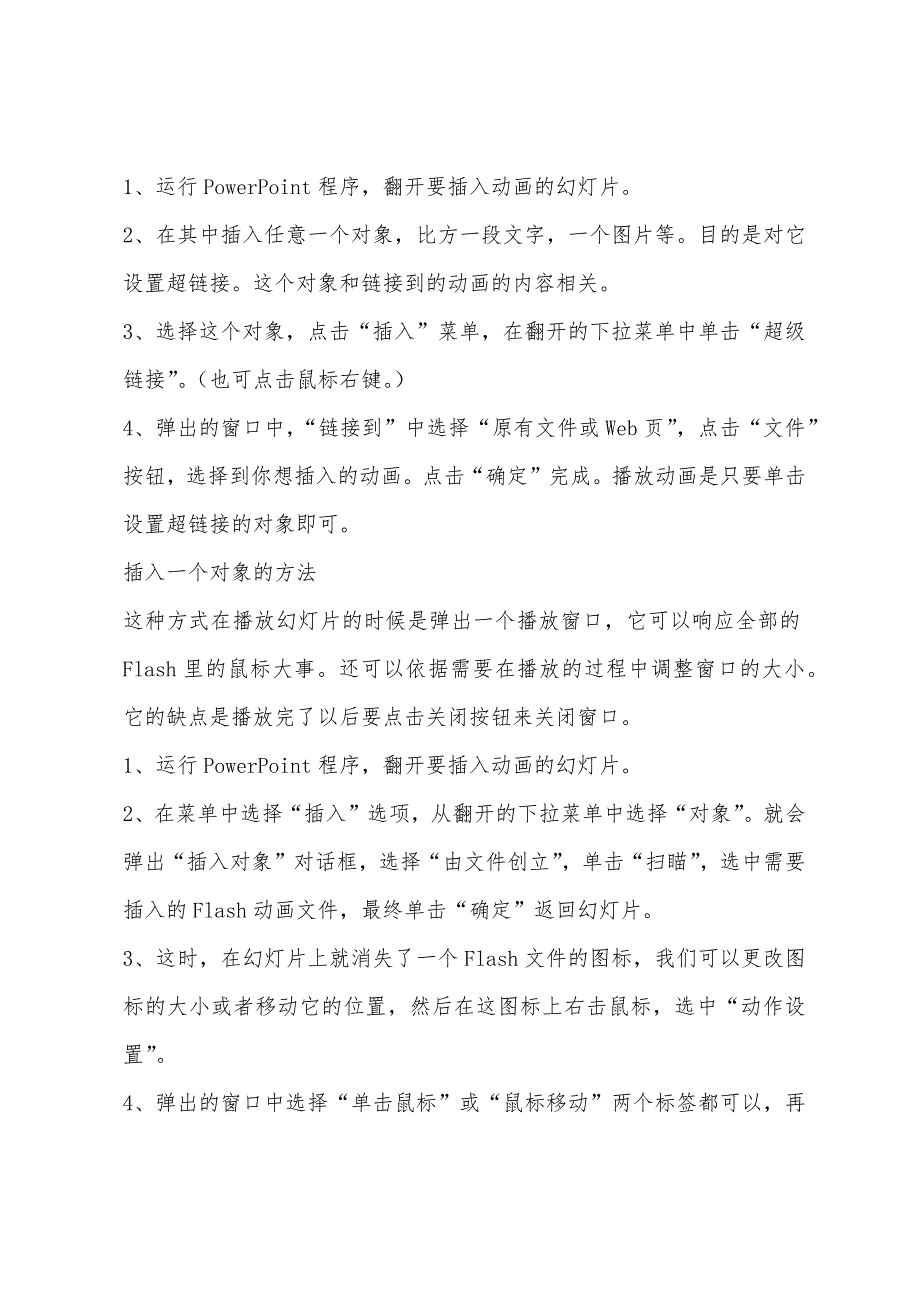 1、运行PowerPoint程序，翻开要插入动画的幻灯片。
2、在其中插入任意一个对象，比方一段文字，一个图片等。目的是对它
设置超链接。这个对象和链接到的动画的内容相关。
3、选择这个对象，点击“插入”菜单，在翻开的下拉菜单中单击“超级
链接”。（也可点击鼠标右键。）
4、弹出的窗口中，“链接到”中选择“原有文件或Web页”，点击“文件”
按钮，选择到你想插入的动画。点击“确定”完成。播放动画是只要单击
设置超链接的对象即可。
插入一个对象的方法
这种方式在播放幻灯片的时候是弹出一个播放窗口，它可以响应全部的
Flash里的鼠标大事。还可以依据需要在播放的过程中调整窗口的大小。
它的缺点是播放完了以后要点击关闭按钮来关闭窗口。
1、运行PowerPoint程序，翻开要插入动画的幻灯片。
2、在菜单中选择“插入”选项，从翻开的下拉菜单中选择“对象”。就会
弹出“插入对象”对话框，选择“由文件创立”，单击“扫瞄”，选中需要
插入的Flash动画文件，最终单击“确定”返回幻灯片。
3、这时，在幻灯片上就消失了一个Flash文件的图标，我们可以更改图
标的大小或者移动它的位置，然后在这图标上右击鼠标，选中“动作设
置”。
4、弹出的窗口中选择“单击鼠标”或“鼠标移动”两个标签都可以，再